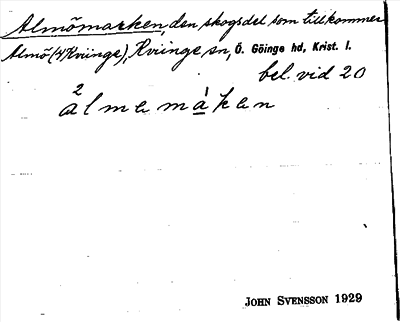 Almömarken, den skogsdel som tillkommer
Almö (4 Kviinge), Kviinge sn, Ö. Göinge hd, Krist. l.
bel. vid 20
2àlmemàken
JOHN SVENSSON 1929